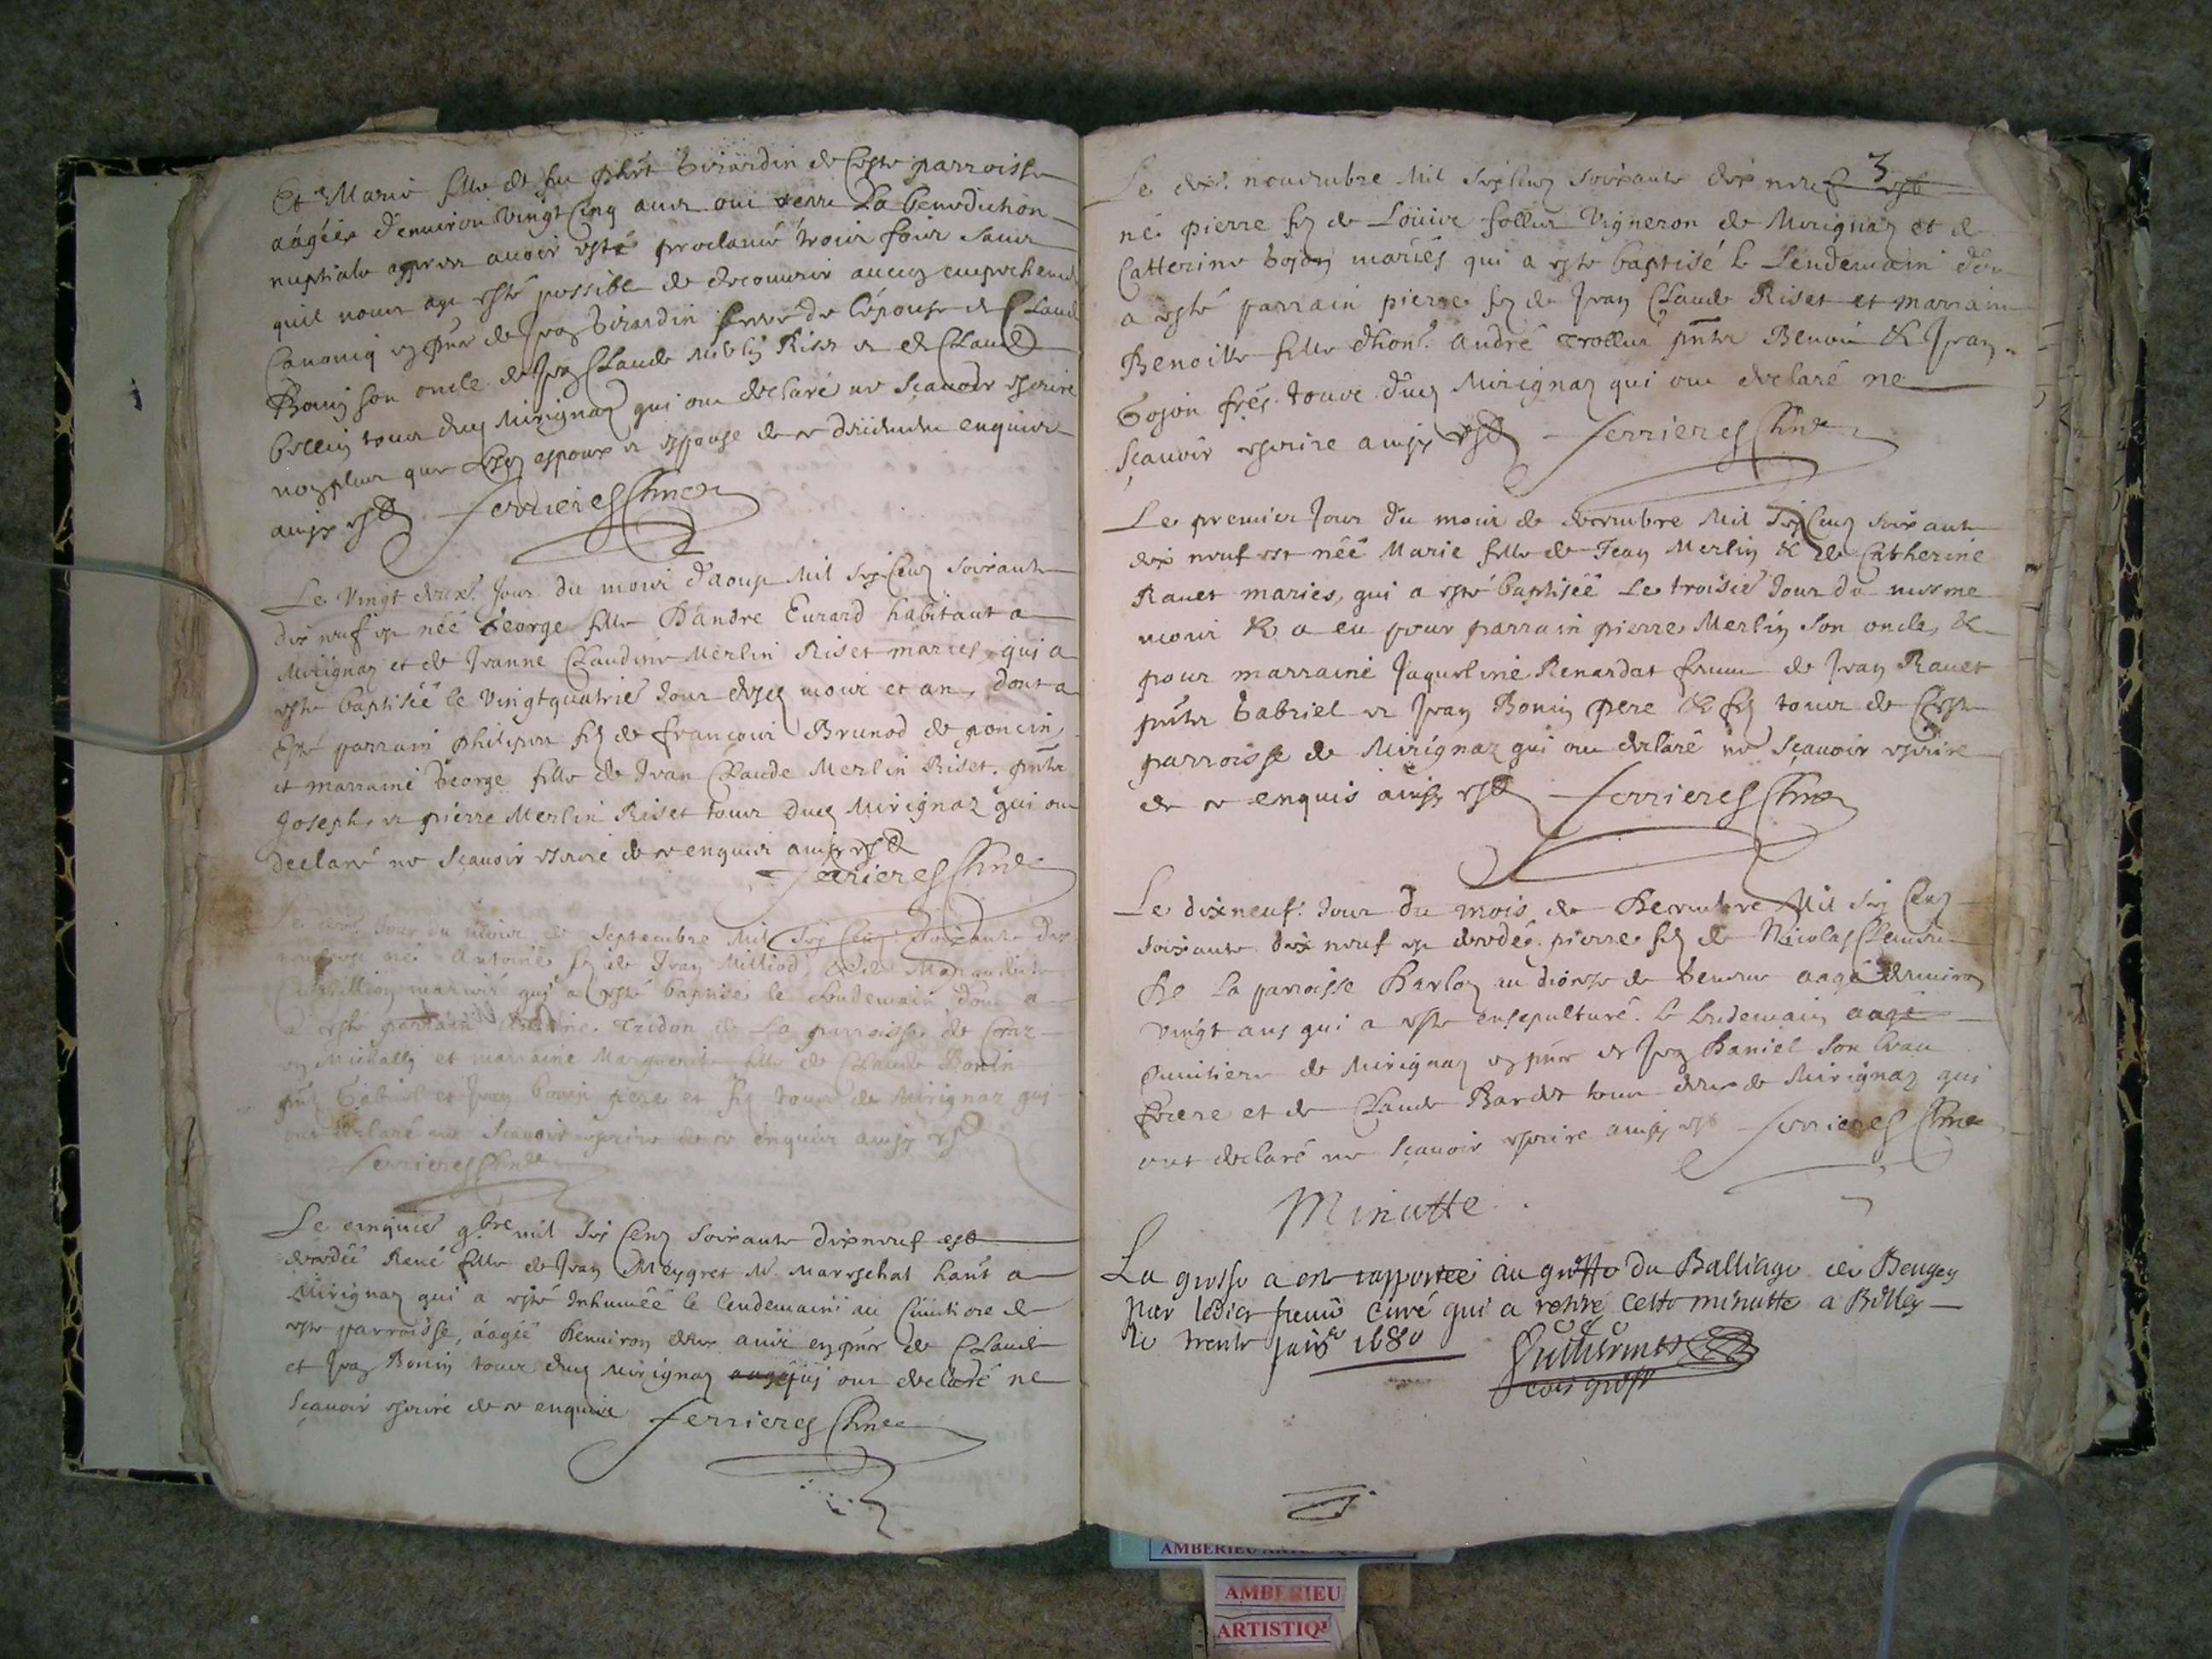 Et Marie fille de feu Girardin de ceste parroisse
aagée d'enuiron vingt cinq ans ont receu La benediction
nuptiale apres auoir esté proclamé trois fois sans
quil nous aye esté possible de decouurir aucun empechement
canoniq en pnce de Jean Girardin frere de lépouse de Claude
Bonin son oncle de Jean Claude Merlin Riset et de Claude
bellin tous dud Mirignaz qui ont declaré ne sçauoir escrire
non plus que lesd espoux et espouse de ce deüement enquis
ainsy est Ferrieres Curé
Le Vingt deux. Jour du mois d'aoust Mil six Cens soixante
dix neuf est néé George fille D'andre Eurard habitant a
Mirignaz et de Jeanne Claudine Merlin Riset mariés, qui a
esté baptiséé le Vingtquatrie Jour desd mois et an, dont a
Esté parrain philipin fils de francois Brunod de poncin,
et marraine George fille de Jean Claude Merlin Riset. pntz
Joseph, et pierre Merlin Riset tous dud Mirignaz qui ont
declaré ne sçauoir escrire de ce enquis ainsy est
Ferrieres Curé
Le Jour du mois de Septembre Mil six Cens soixante dix
neuf est né Antoine fils de Jean Milliod, et de
mariés qui a esté baptisé le lendemain dont a
a esté parrain Antoine Tridon de La parroisse de Craz
en Michaille et marraine Marguerite fille de Claude Bonin
pntz Gabriel et Jean bonin pere et fils tous de Mirignaz qui
ont declaré ne Scauoir escrire de ce enquis ainsy est
Ferrieres Curé
Le cinquie 9bre mil six Cens soixante dix neuf est
decedéé René fille de Jean Meygret Me. Mareschal hant a
Mirignaz qui a esté Inhuméé le lendemain au Cimitiere de
cette parroisse, aagéé denuiron deux ans en pnce de Claude
et Jean Bonin tous dud Mirignaz qui ont declaré ne
sçauoir escrire de ce enquis Ferrieres Curé
3
Le dix. nouembre Mil six Cens soixante dix neuf est
né pierre fils de Loüis follier Vigneron de Mirignaz et de
Catterine Gojon mariés qui a esté baptisé le Lendemain don
a esté parrain pierre fils de Jean Claude Riset et marraine
Benoitte fille d'hon. André Trollier pntz Benoit & Jean
Gojon frés. tous dud Mirignaz qui ont declaré ne
sçauoir escrire ainsy est Ferrieres Curé
Le premier Jour du mois de decembre Mil six Cens soixante
dix neuf est néé Marie fille de Jean Merlin & de Catherine
Rauet mariés, qui a esté baptiséé Le troisie Jour du mesme
mois & a eu pour parrain pierre Merlin son oncle, &
pour marraine Jaqueline Renardat femme de Jean Rauet
pntz Gabriel et Jean Bonin pere & fils tous de Ceste
parroisse de Mirignaz qui ont declaré ne Sçauoir escrire
de ce enquis ainsy est Ferrieres Curé
Le dixneuf. Jour du mois de Decembre Mil six Cens
soixante dix neuf est decedé. pierre fils de Nicolas
De La parroisse Darlo au diocese de Geneue aagé denuiron
vingt ans qui a esté ensepulturé. le lendemain
Cimitiere de Mirignaz en pnce de Jean Daniel son beau
frere et de Claude Bardet tous deux de Mirignaz qui
ont declaré ne sçauoir escrire ainsy est Ferrieres Curé
Minutte
La grosse a esté rapportée au greffe du Balliage de Beugey
par ledict sieur Curé qui a retiré cette minutte a Belley
le trente 1680
Guillermet
AMBERIEU
ARTISTIQ